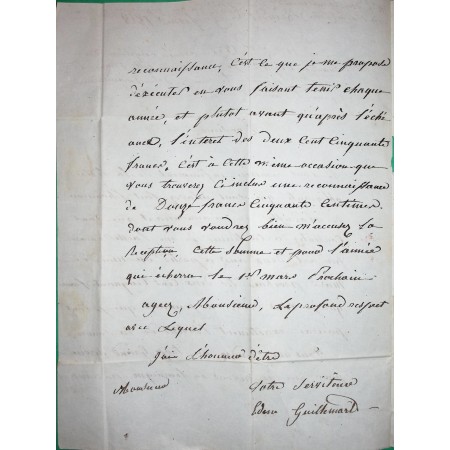 reconnaissance, c'est ce que je me propose
d'éxécuter en vous faisant tenir chaque
année, et plutot avant qu'après l'éché
ance, l'interet des deux Cent Cinquante
francs, c'est à cette même occasion que
vous trouverez ci inclus une reconnaissance
de Douze francs Cinquante Centimes
dont vous voudrez bien m'accuser la
Reception, cette somme est pour l'année
qui écherra le 1er mars Prochain
agréez, Monsieur, Le profond respect
avec Lequel
J'ai L'honneur d'être
Monsieur
Votre Serviteur
Guillemard